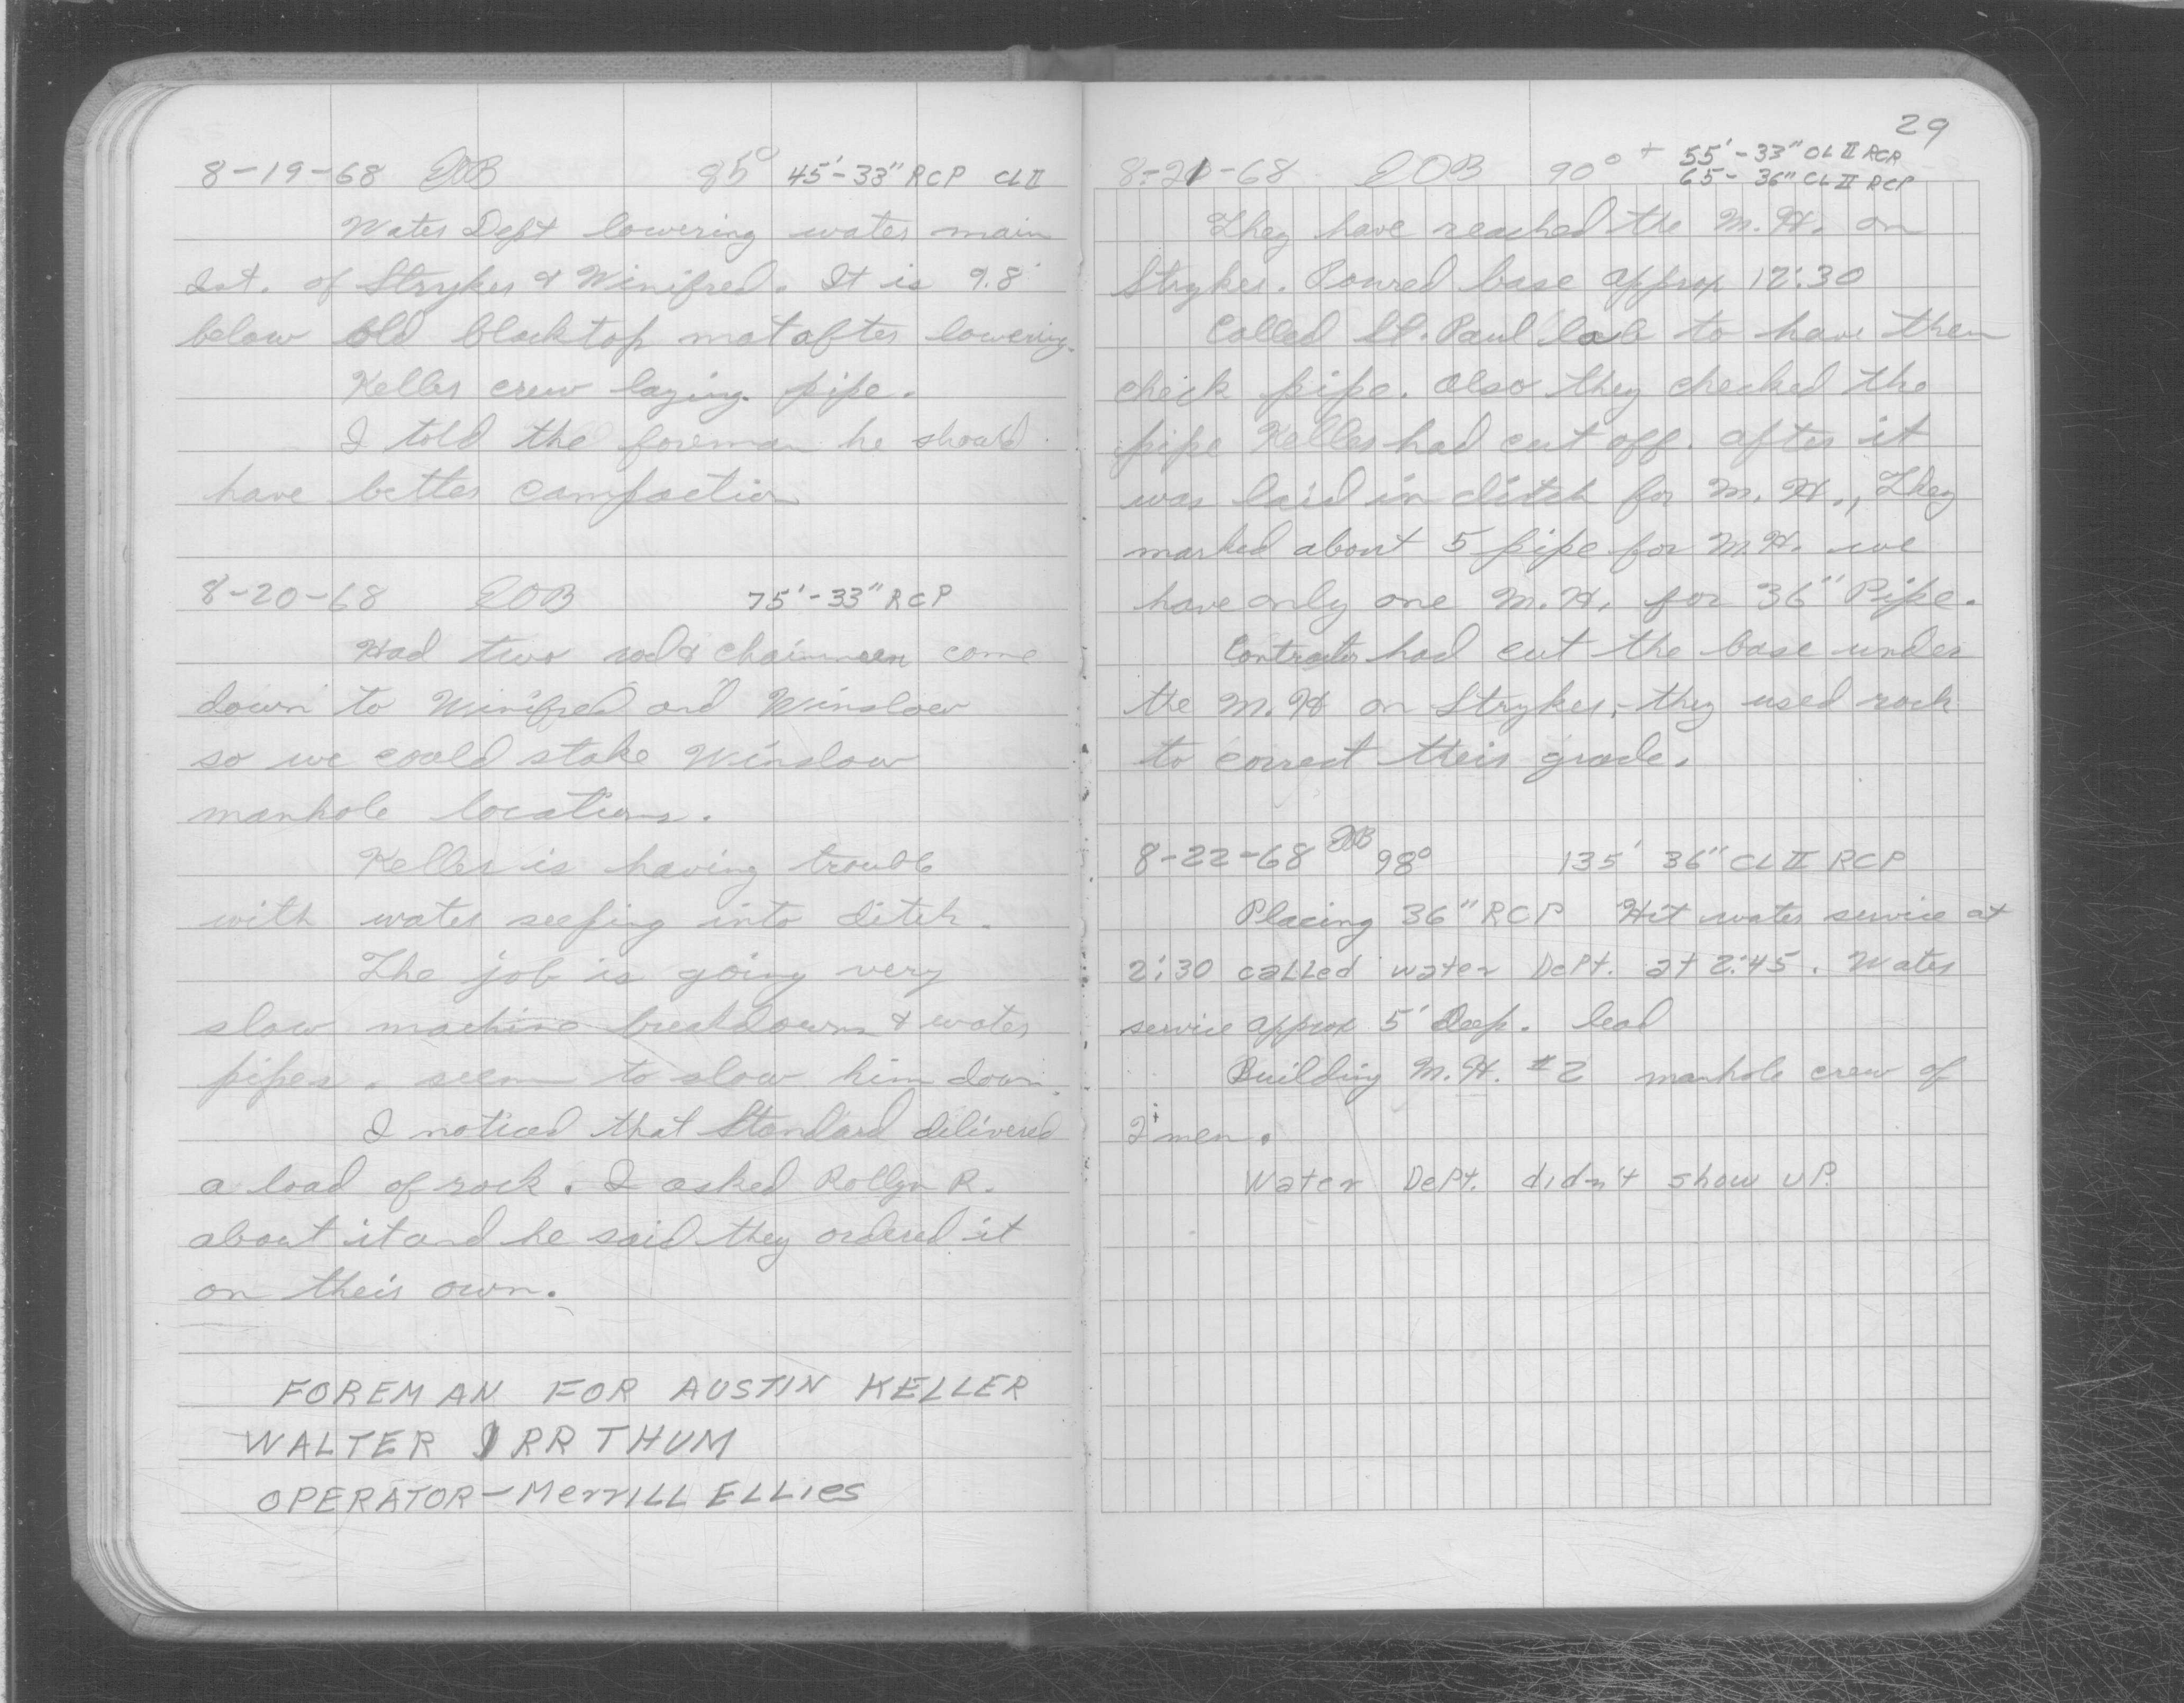 8-19-68 EOB 85° 45'-33" RCP CL II
Water Dept lowering water main
Int. of Stryker & Winifred. It is 9.8'
below old blacktop mat after lowering.
Keller crew laying pipe.
I told the foreman he should
have better compaction
8-20-68 EOB 75'-33" RCP
Had two rod & chainmen come
down to Winifred and Winslow
so we could stake Winslow
manhole locations.
Keller is having trouble
with water seeping into ditch.
The job is going very
slow machine breakdowns & water
pipes. seem to slow him down.
I noticed that Standard delivered
a load of rock. I asked Rollyn R.
about it and he said they ordered it
on their own.
FOREMAN FOR AUSTIN KELLER
WALTER IRRTHUM
OPERATOR - MerrILL ELLIes
29
8-21-68 EOB 90° + 55'-33" CL II RCP
65- 36" CL II RCP
They have reached the M.H. on
Stryker. Poured base approx 12:30
Called St. Paul lab to have them
check pipe. Also they checked the
pipe Keller had cut off. after it
was laid in ditch for M.H., They
marked about 5 pipe for M.H. we
have only one M.H. for 36" Pipe.
Contractor had cut the base under
the M.H on Stryker, they used rock
to correct their grade.
8-22-68 EOB 98° 135' 36" CL II RCP
Placing 36" RCP Hit water service at
2:30 called water Dept. at 2:45. Water
service approx 5' Deep. lead
Building M.H. #2 manhole crew of
2 men.
Water Dept. didn't show up.